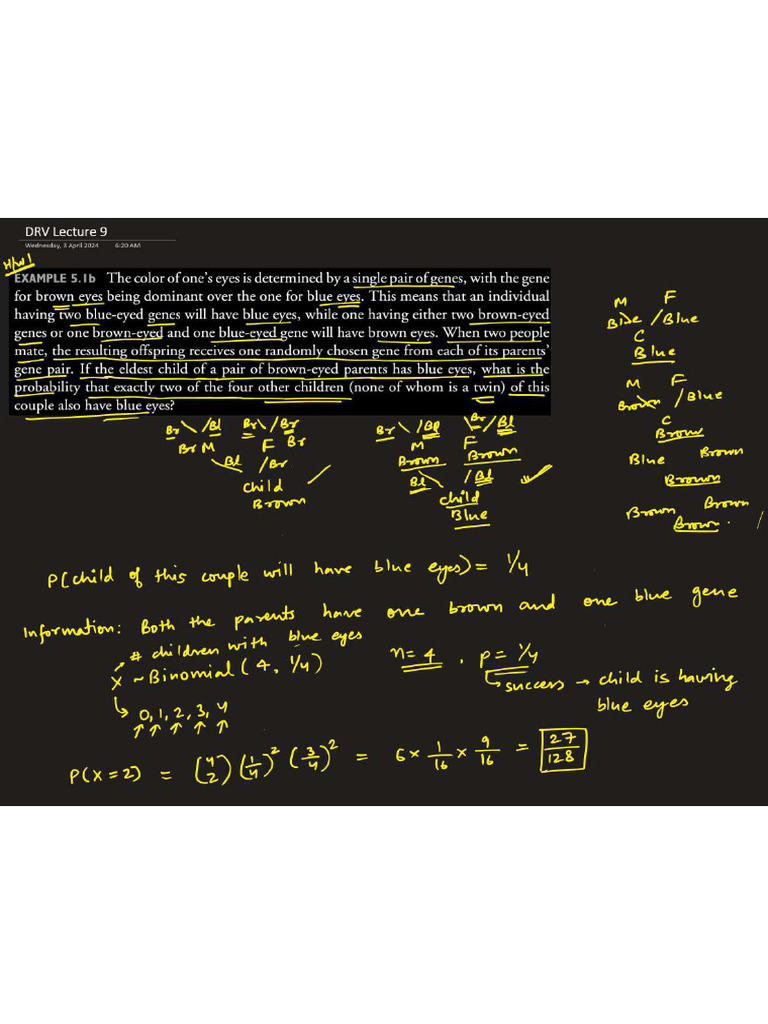 DRV Lecture 9
Wednesday, 3 April 2024 6:20 AM
H/W!
EXAMPLE 5.1b The color of one's eyes is determined by a single pair of genes, with the gene
for brown eyes being dominant over the one for blue eyes. This means that an individual
having two blue-eyed genes will have blue eyes, while one having either two brown-eyed
genes or one brown-eyed and one blue-eyed gene will have brown eyes. When two people
mate, the resulting offspring receives one randomly chosen gene from each of its parents'
gene pair. If the eldest child of a pair of brown-eyed parents has blue eyes, what is the
probability that exactly two of the four other children (none of whom is a twin) of this
couple also have blue eyes?
M F
Blue / Blue
C
Blue
M F
Brown / Blue
C
Brown
Blue Brown
Brown
Brown Brown
Brown.
Br \ / Bl Br \ / Br
Br M F Br
Bl / Br
child
Brown
Br \ / Bl Br / Bl
M F
Brown Brown
Bl \ / Bl
child
Blue
P(child of this couple will have blue eyes) = 1/4
Information: Both the parents have one brown and one blue gene
# children with blue eyes
X ~ Binomial (4, 1/4) n = 4 , p = 1/4
↳ success → child is having
blue eyes
↳ 0, 1, 2, 3, 4
↑ ↑ ↑ ↑ ↑
P(X = 2) = (4 2) (1/4)² (3/4)² = 6 × 1/16 × 9/16 = 27/128